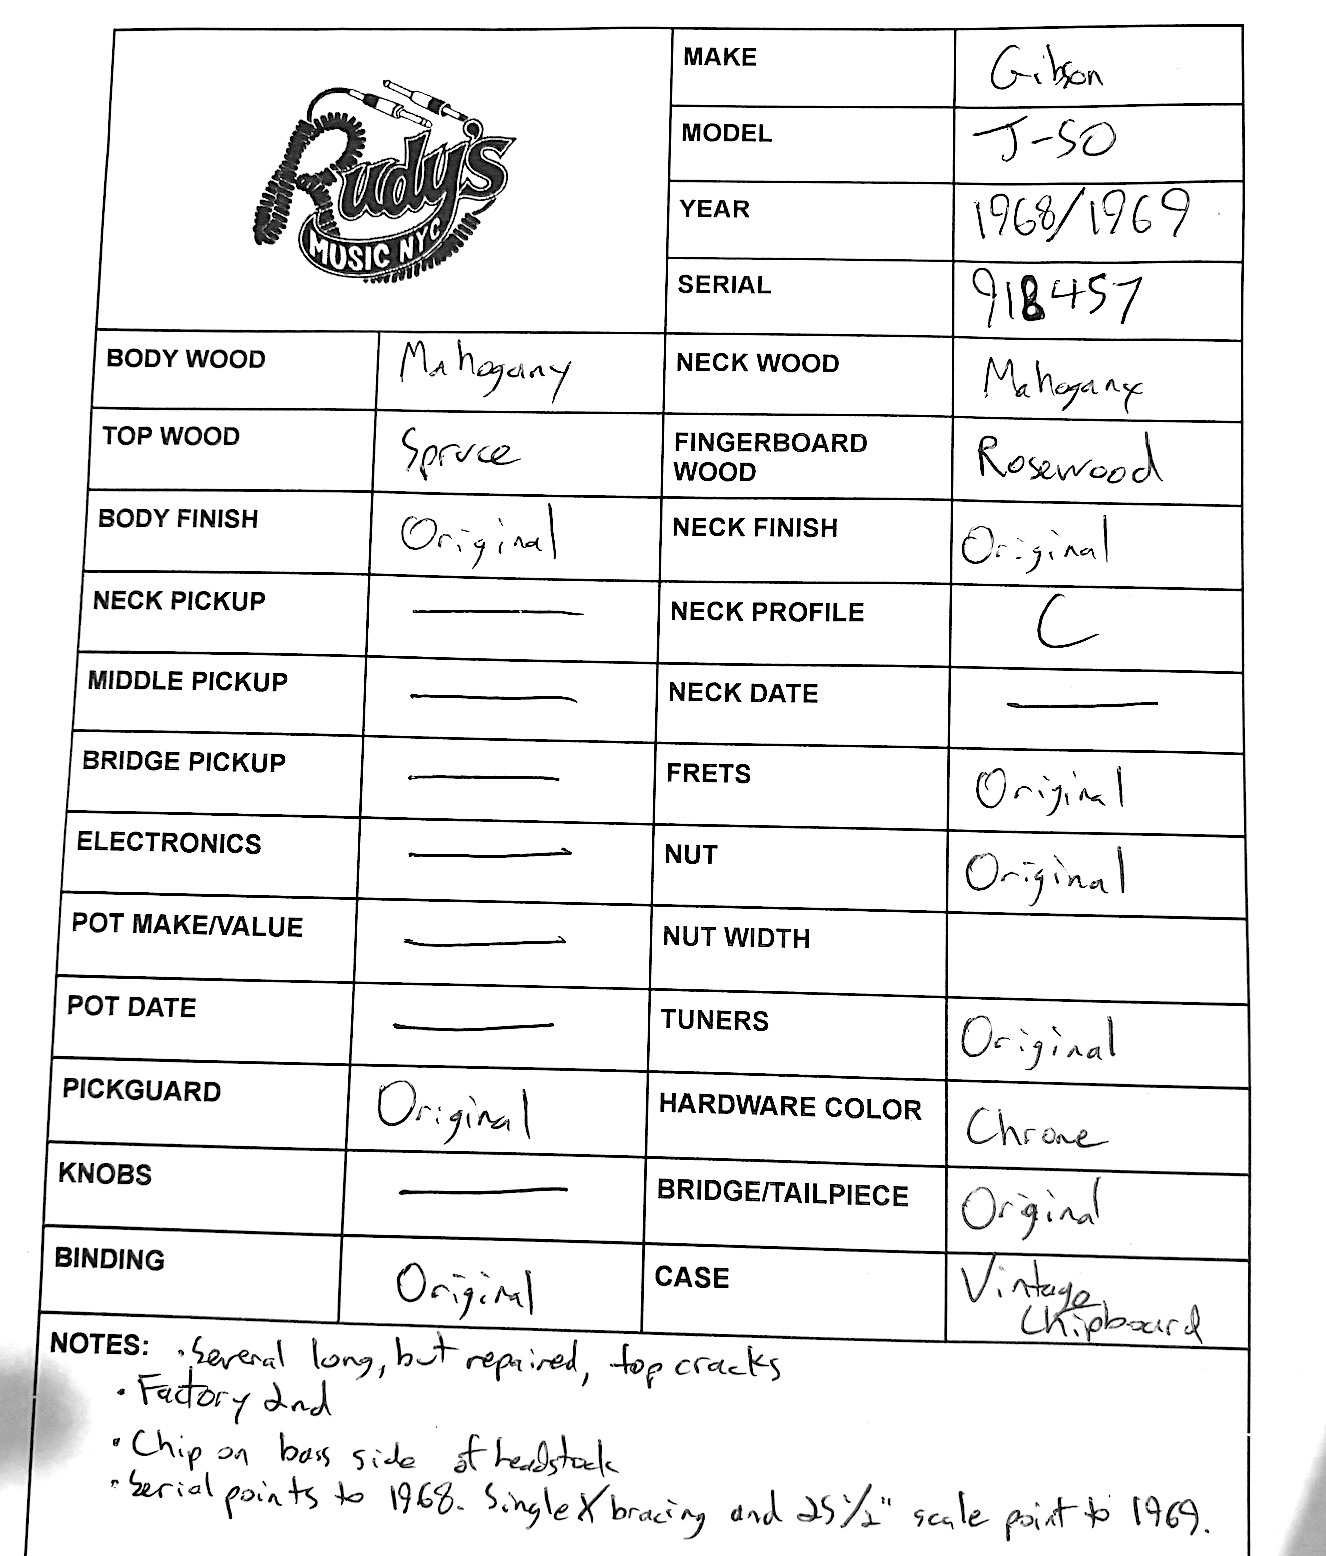 Rudy's
MUSIC NYC
MAKE Gibson
MODEL J-50
YEAR 1968/1969
SERIAL 918457
BODY WOOD Mahogany NECK WOOD Mahogany
TOP WOOD Spruce FINGERBOARD WOOD Rosewood
BODY FINISH Original NECK FINISH Original
NECK PICKUP — NECK PROFILE C
MIDDLE PICKUP — NECK DATE —
BRIDGE PICKUP — FRETS Original
ELECTRONICS — NUT Original
POT MAKE/VALUE — NUT WIDTH
POT DATE — TUNERS Original
PICKGUARD Original HARDWARE COLOR Chrome
KNOBS — BRIDGE/TAILPIECE Original
BINDING Original CASE Vintage Chipboard
NOTES: • Several long, but repaired, top cracks
• Factory 2nd
• Chip on bass side of headstock
• Serial points to 1968. Single X bracing and 25 1/2" scale point to 1969.